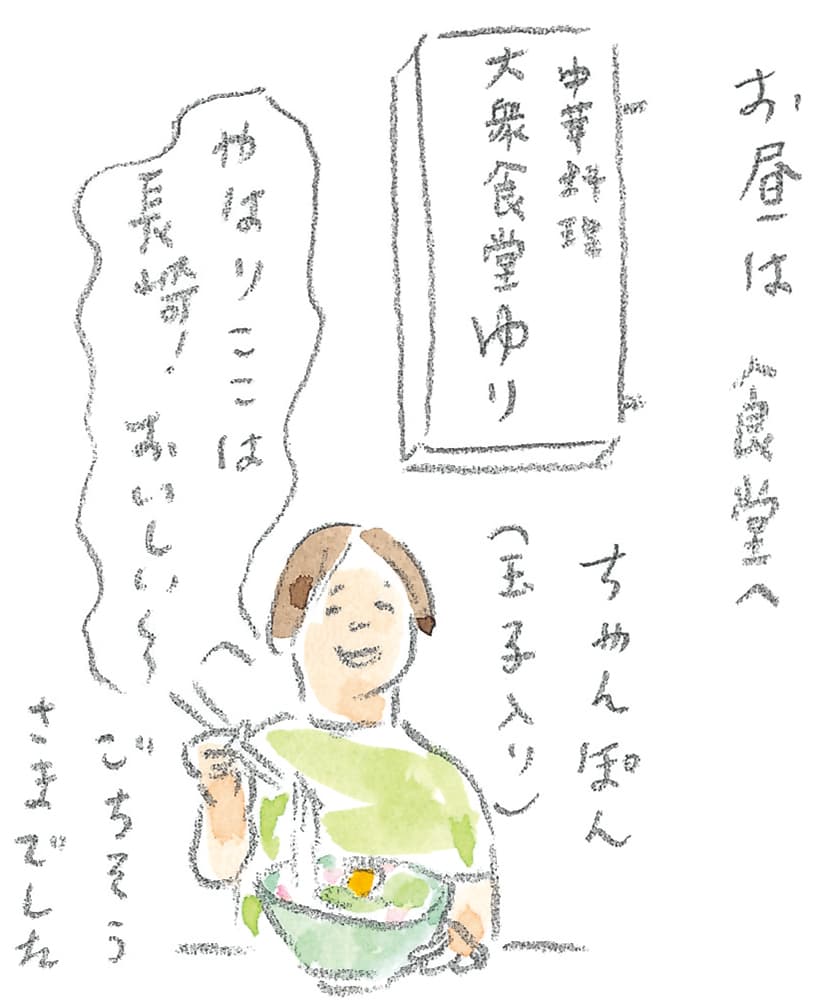 お昼は食堂へ
中華料理
大衆食堂ゆり
ちゃんぽん
(玉子入り)
やはりここは
長崎!おいしい〜
ごちそう
さまでした